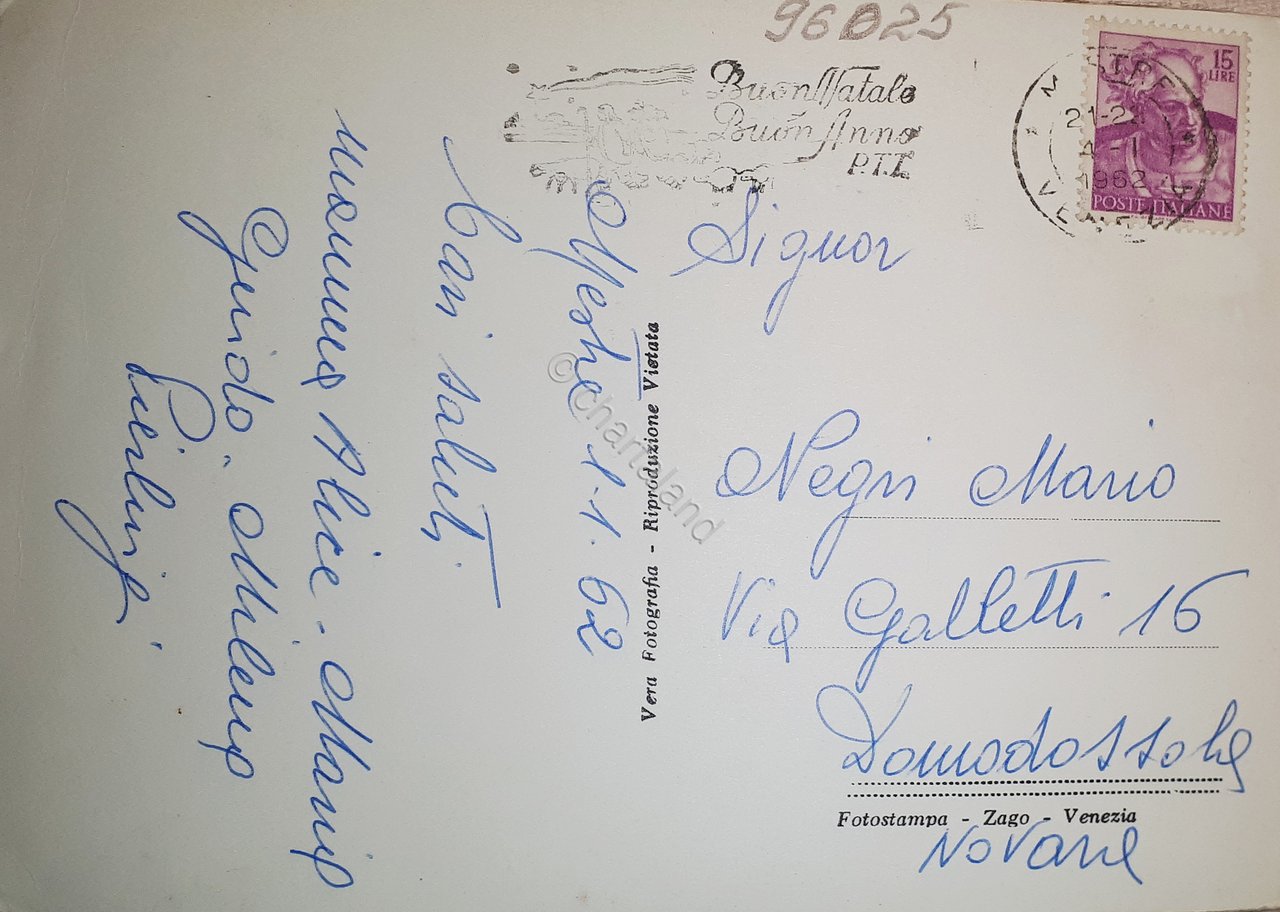 96025
Buon Natale
Buon Anno
P.T.T.
15
LIRE
POSTE ITALIANE
MESTRE
21-2
4-1
1962
VENEZIA
Mestre 1-1-62
Cari saluti
Mamma Alice - Maria
Guido - Milena
Pierluigi
Vera Fotografia - Riproduzione Vietata
© chartaland
Signor
Negri Mario
Via Galletti 16
Domodossola
Fotostampa - Zago - Venezia
Novara